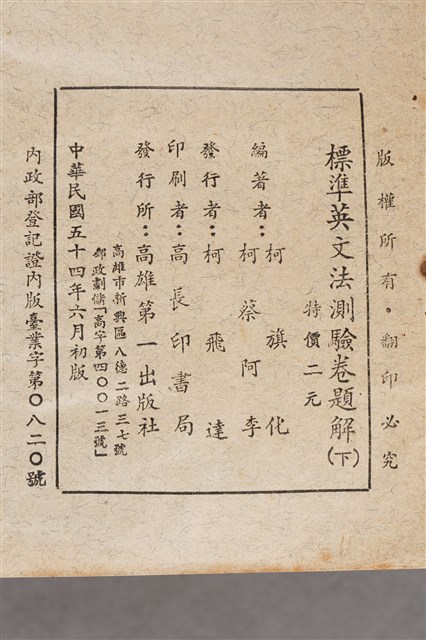 版權所有・翻印必究
標準英文法測驗卷題解(下)
特價二元
編著者：柯旗化
柯蔡阿李
發行者：柯飛達
印刷者：高長印書局
發行所：高雄第一出版社
高雄市新興區八德二路三七號
郵政劃儲「高字第四〇〇一三號」
中華民國五十四年六月初版
內政部登記證內版臺業字第〇八二〇號